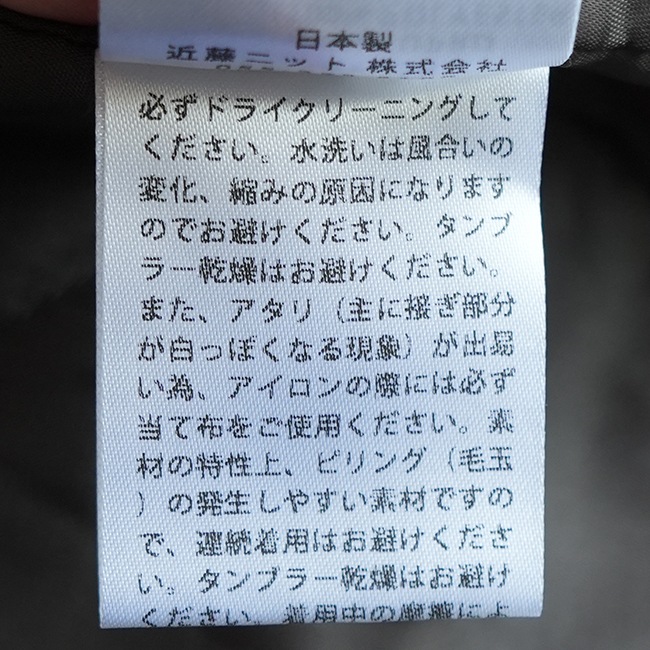 日本製
近藤ニット株式会社
必ずドライクリーニングして
ください。水洗いは風合いの
変化、縮みの原因になります
のでお避けください。タンブ
ラー乾燥はお避けください。
また、アタリ（主に接ぎ部分
が白っぽくなる現象）が出易
い為、アイロンの際には必ず
当て布をご使用ください。素
材の特性上、ピリング（毛玉
）の発生しやすい素材ですの
で、連続着用はお避けくださ
い。タンブラー乾燥はお避け
ください。着用中の摩擦によ